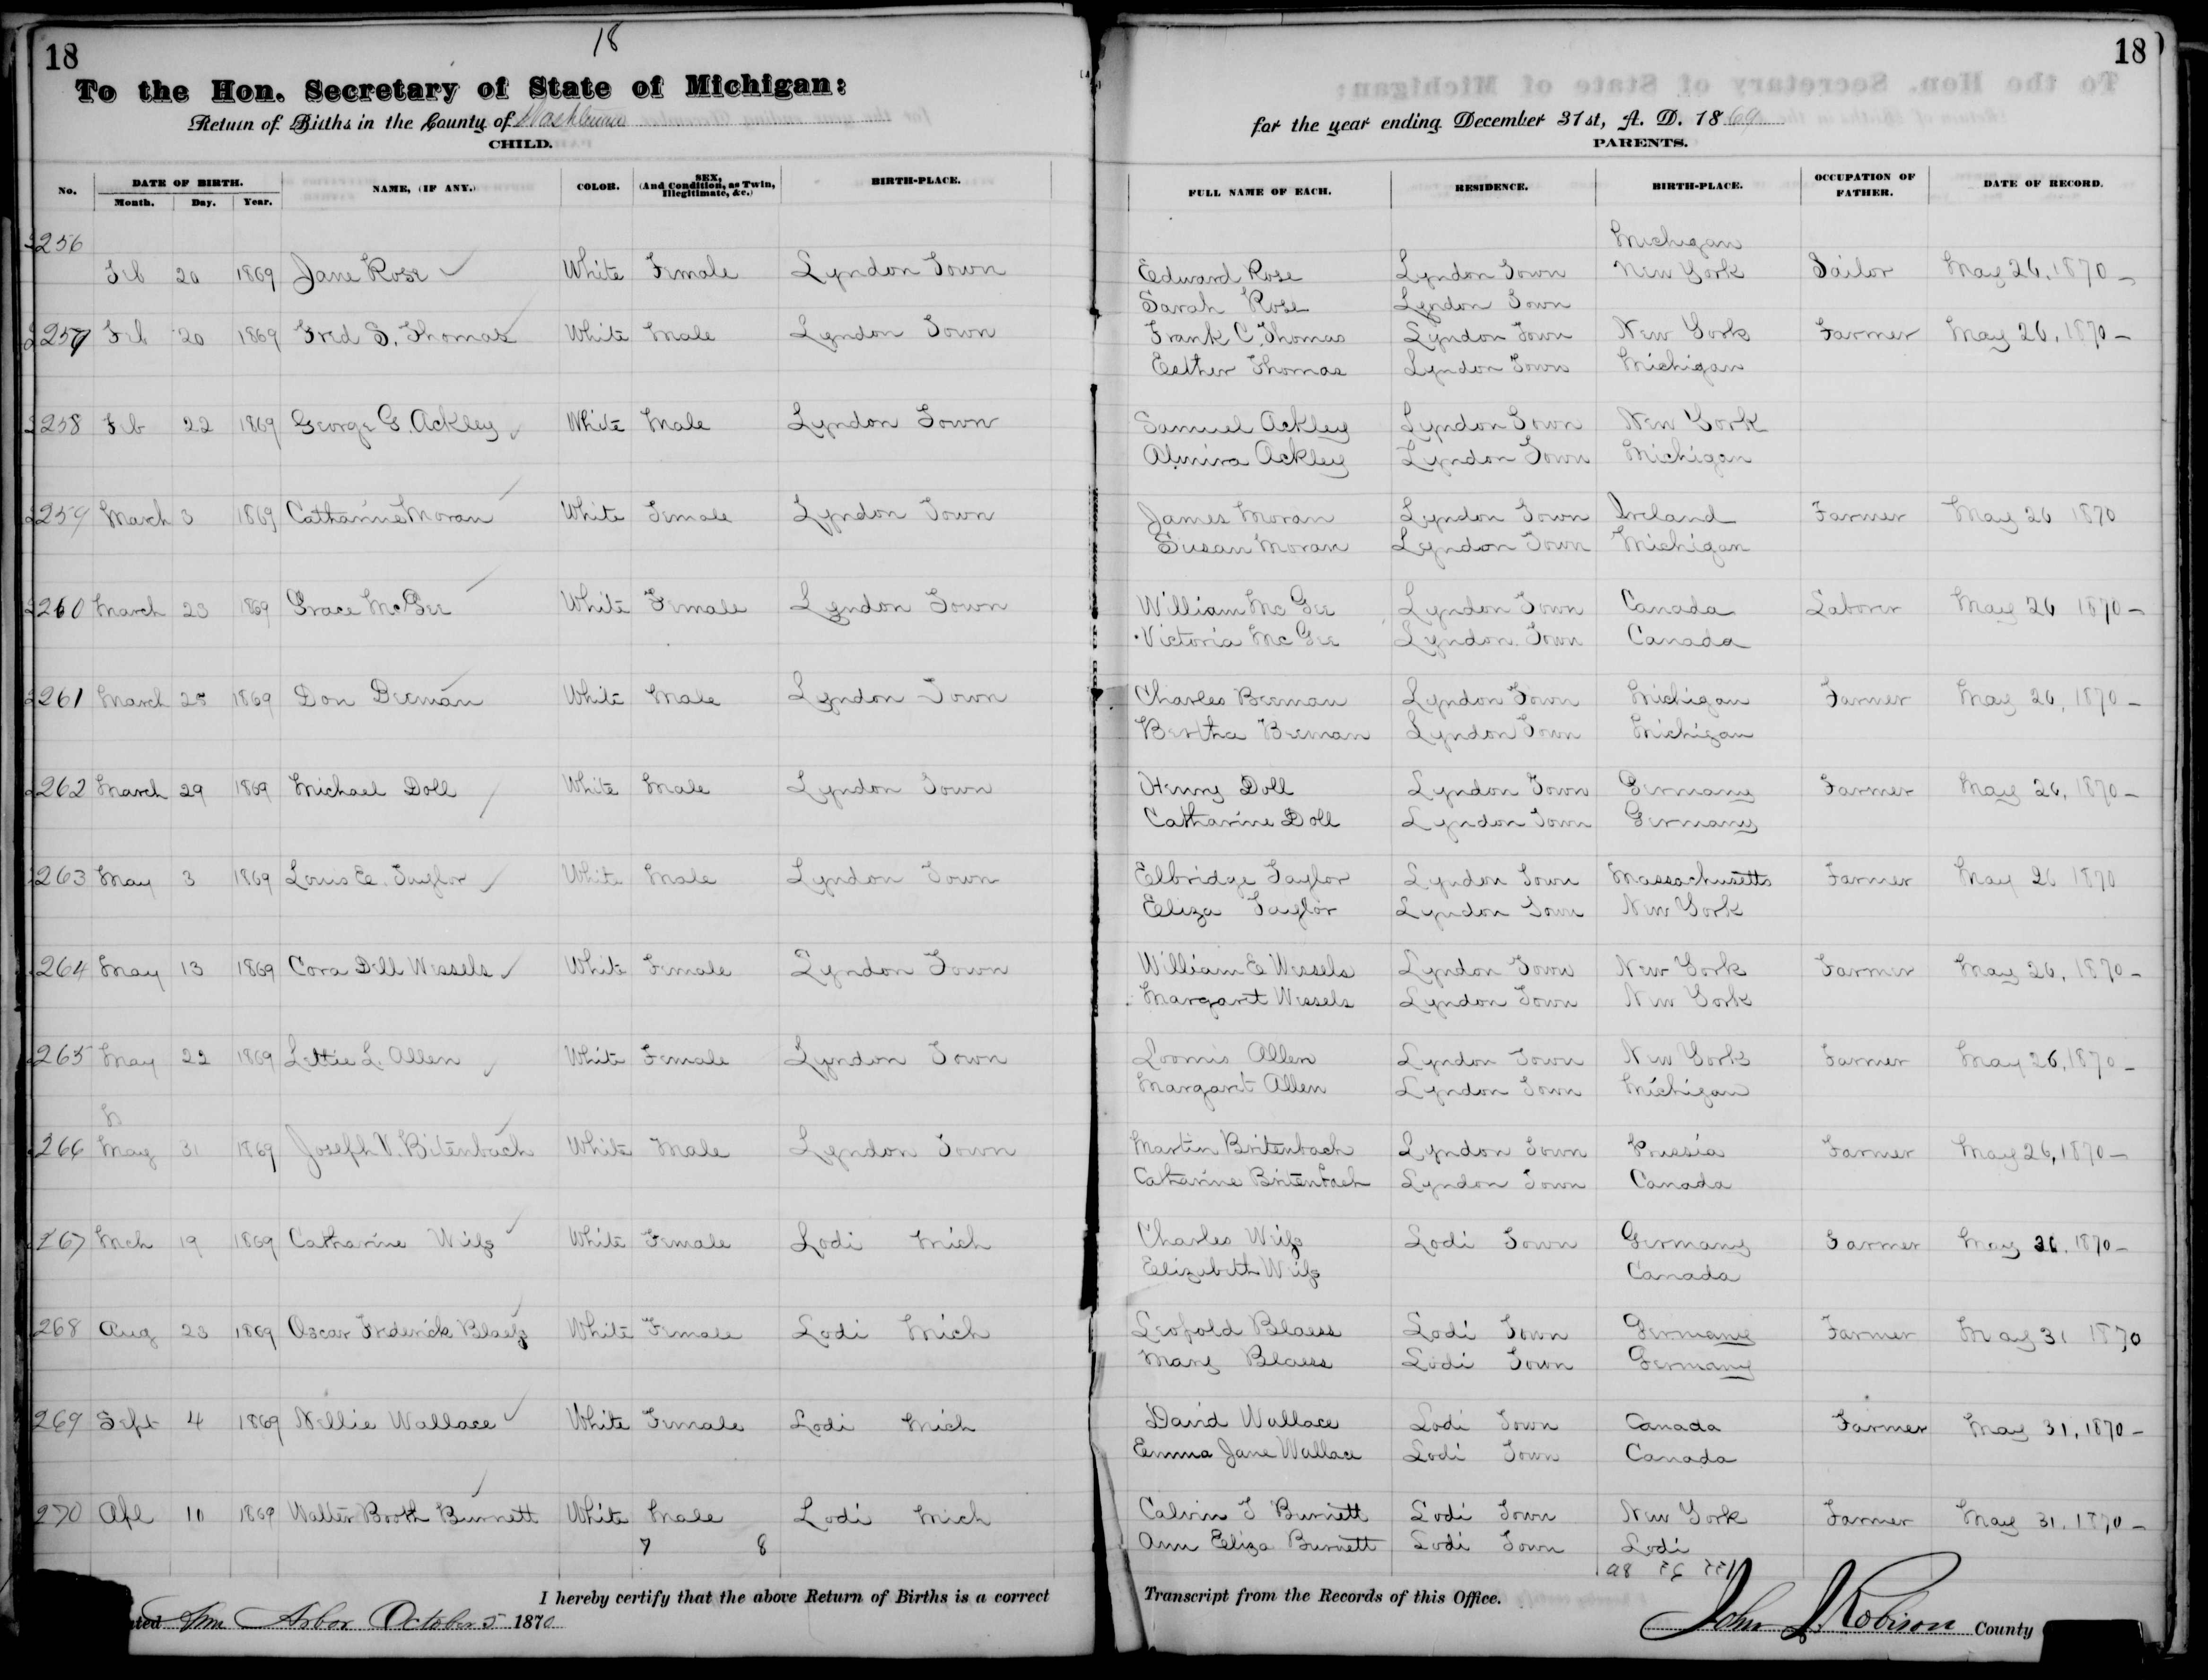 18
18
18
To the Hon. Secretary of State of Michigan:
Return of Births in the County of Washtenaw
for the year ending December 31st, A. D. 1869
CHILD.
PARENTS.
No. DATE OF BIRTH. NAME, (IF ANY.) COLOR. SEX, (And Condition, as Twin, Illegitimate, &c.) BIRTH-PLACE. FULL NAME OF EACH. RESIDENCE. BIRTH-PLACE. OCCUPATION OF FATHER. DATE OF RECORD.
Month. Day. Year.
256 Michigan
Feb 20 1869 Jane Rose White Female Lyndon Town Edward Rose Lyndon Town New York Sailor May 26, 1870
Sarah Rose Lyndon Town
257 Feb 20 1869 Fred S. Thomas White Male Lyndon Town Frank C. Thomas Lyndon Town New York Farmer May 26, 1870
Esther Thomas Lyndon Town Michigan
258 Feb 22 1869 George G. Ackley White Male Lyndon Town Samuel Ackley Lyndon Town New York
Almira Ackley Lyndon Town Michigan
259 March 3 1869 Catharine Moran White Female Lyndon Town James Moran Lyndon Town Ireland Farmer May 26 1870
Susan Moran Lyndon Town Michigan
260 March 23 1869 Grace McGee White Female Lyndon Town William McGee Lyndon Town Canada Laborer May 26 1870
Victoria McGee Lyndon Town Canada
261 March 25 1869 Don Beeman White Male Lyndon Town Charles Beeman Lyndon Town Michigan Farmer May 26, 1870
Bertha Beeman Lyndon Town Michigan
262 March 29 1869 Michael Doll White Male Lyndon Town Henry Doll Lyndon Town Germany Farmer May 26, 1870
Catharine Doll Lyndon Town Germany
263 May 3 1869 Louis E. Taylor White Male Lyndon Town Elbridge Taylor Lyndon Town Massachusetts Farmer May 26 1870
Eliza Taylor Lyndon Town New York
264 May 13 1869 Cora Dell Wessels White Female Lyndon Town William E Wessels Lyndon Town New York Farmer May 26, 1870
Margaret Wessels Lyndon Town New York
265 May 22 1869 Lettie L. Allen White Female Lyndon Town Loomis Allen Lyndon Town New York Farmer May 26, 1870
Margaret Allen Lyndon Town Michigan
266 May 31 1869 Joseph V. Bitenbach White Male Lyndon Town Martin Britenbach Lyndon Town Prussia Farmer May 26, 1870
Catharine Britenbach Lyndon Town Canada
267 Mch 19 1869 Catharine White Female Lodi Mich Charles Lodi Town Germany Farmer May 26, 1870
Elizabeth Canada
268 Aug 23 1869 Oscar Frederick Blaess White Female Lodi Mich Leopold Blaess Lodi Town Germany Farmer May 31 1870
Mary Blaess Lodi Town Germany
269 Sept 4 1869 Nellie Wallace White Female Lodi Mich David Wallace Lodi Town Canada Farmer May 31, 1870
Emma Jane Wallace Lodi Town Canada
270 Apl 10 1869 Walter Booth Burnett White Male Lodi Mich Calvin T Burnett Lodi Town New York Farmer May 31, 1870
7 8 Ann Eliza Burnett Lodi Town Lodi
I hereby certify that the above Return of Births is a correct Transcript from the Records of this Office.
Ann Arbor October 5 1870
John J. Robison County